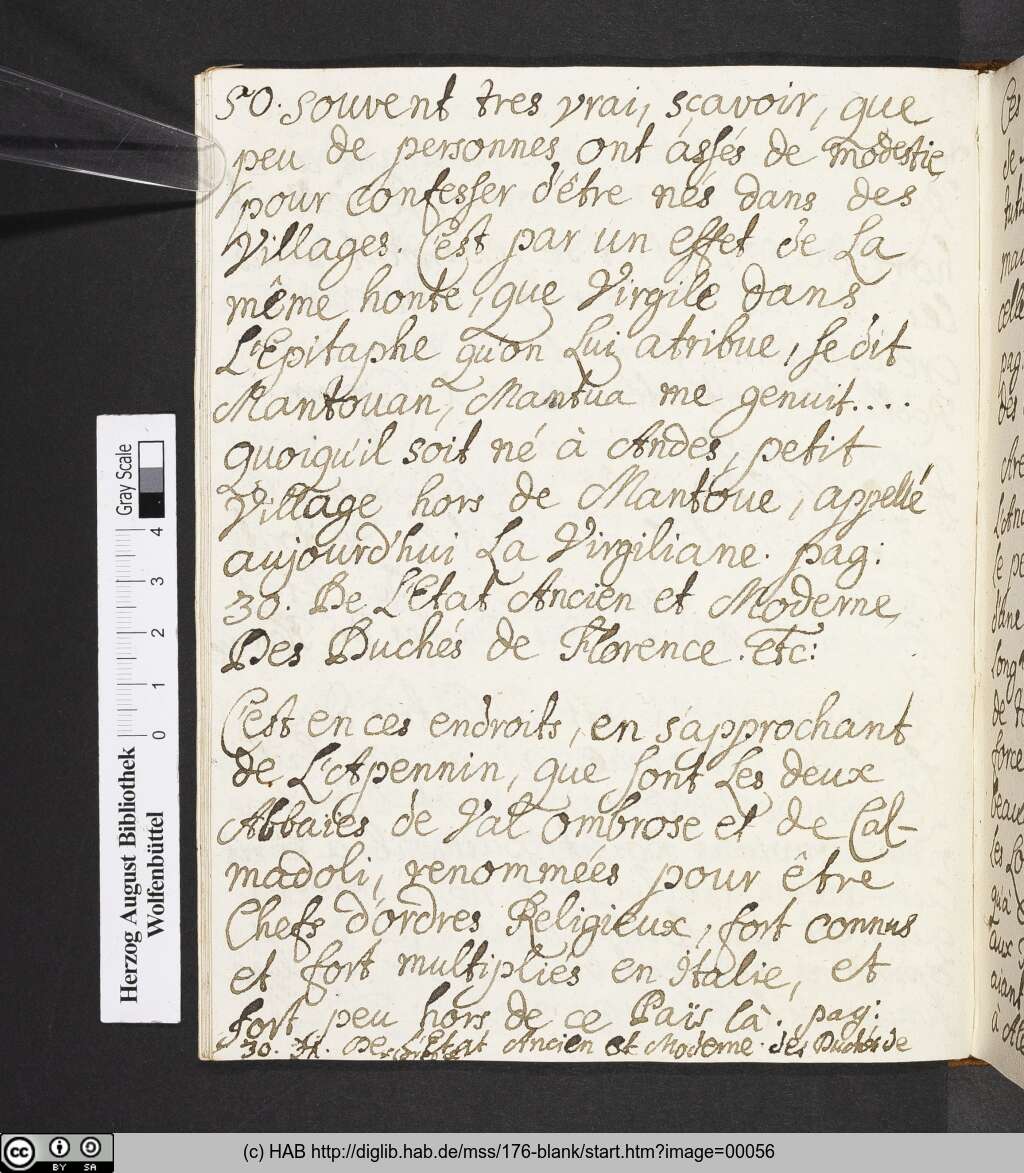 50. souvent tres vrai, sçavoir, que
peu de personnes ont assés de modestie
pour confesser d'être nés dans des
Villages. C'est par un effet de La
même honte, que Virgile dans
L'Epitaphe qu'on Lui atribue, se dit
Mantouan, Mantua me genuit....
quoiqu'il soit né à Andes, petit
Village hors de Mantoue, appellé
aujourd'hui La Virgiliane. pag:
30. De L'Etat Ancien et Moderne
Des Duchés de Florence. etc:
C'est en ces endroits, en s'approchant
de L'Apennin, que sont Les deux
Abbaïes de Val ombrose et de Cal-
madoli, renommées pour être
Chefs d'ordres Religieux, fort connus
et fort multipliés en Italie, et
fort peu hors de ce Païs là. pag:
30. 31. De L'Etat Ancien et Moderne des Duchés de
Herzog August Bibliothek
Wolfenbüttel
0 1 2 3 4
Gray Scale
cc BY SA
(c) HAB http://diglib.hab.de/mss/176-blank/start.htm?image=00056